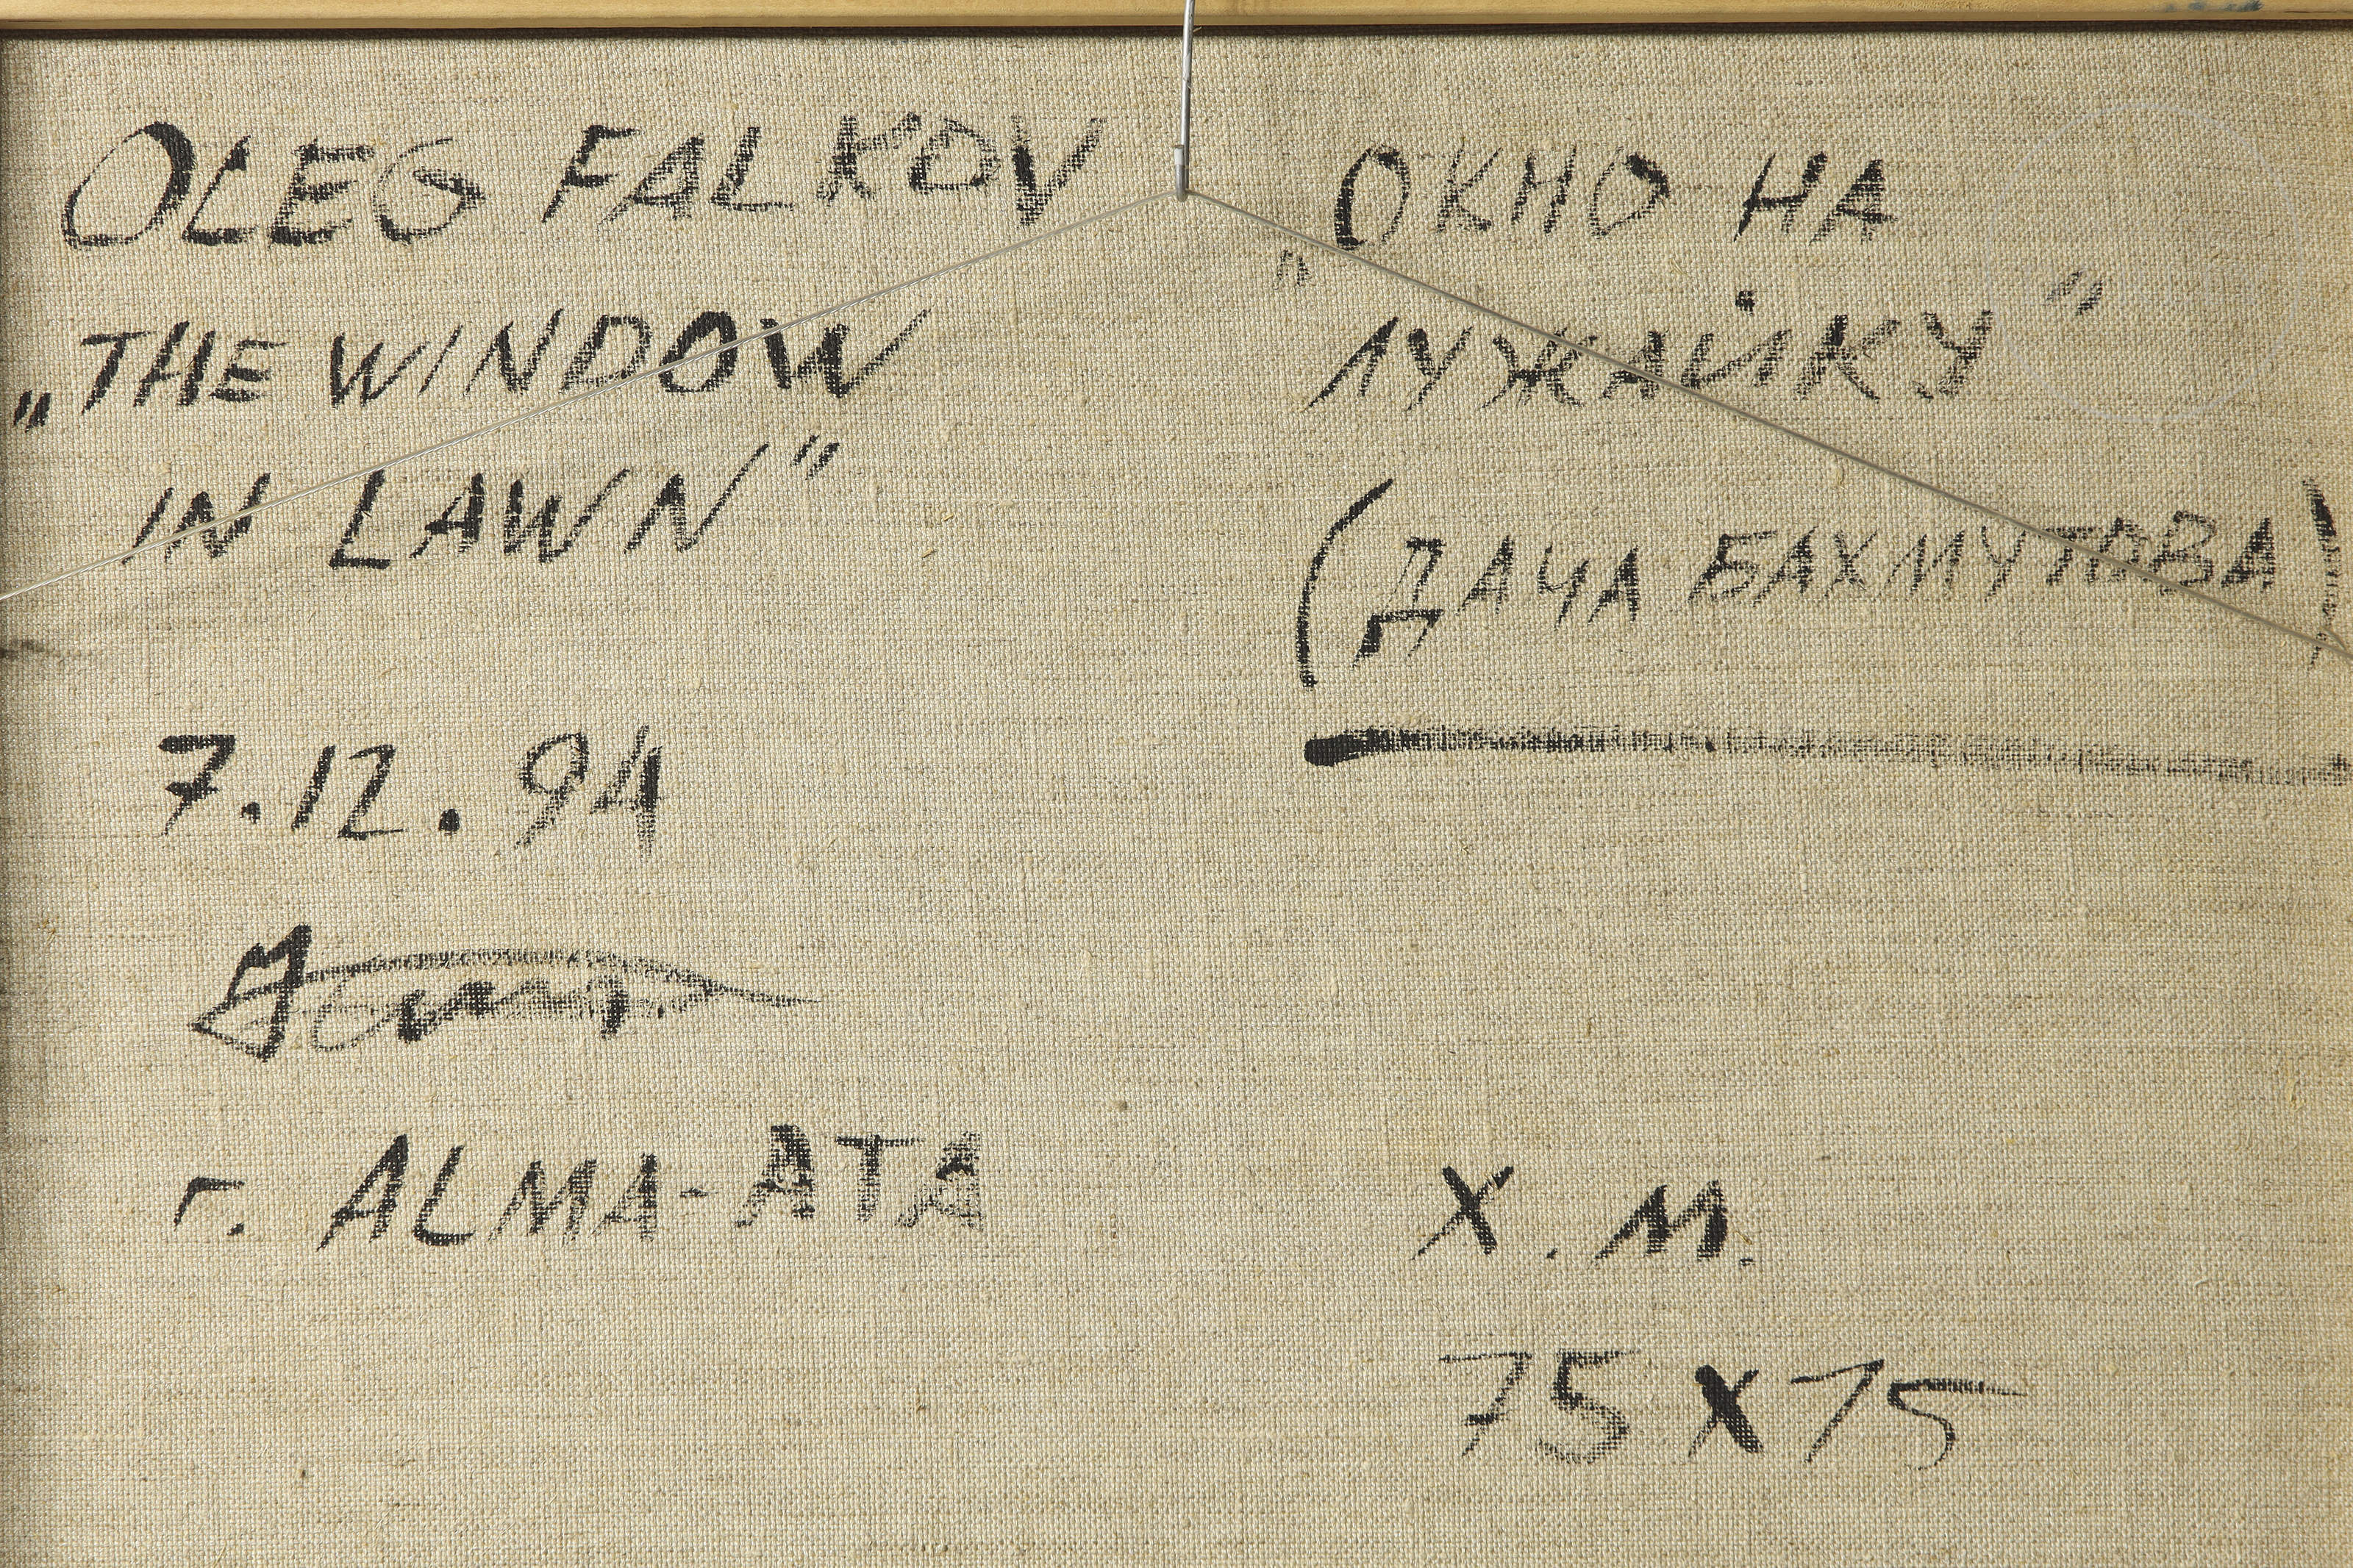 OLEG FALKOV
„THE WINDOW
IN LAWN"
7.12.94
г. ALMA-ATA
"ОКНО НА
ЛУЖАЙКУ"
(ДАЧА БАХМУТОВА)
Х.М.
75x75